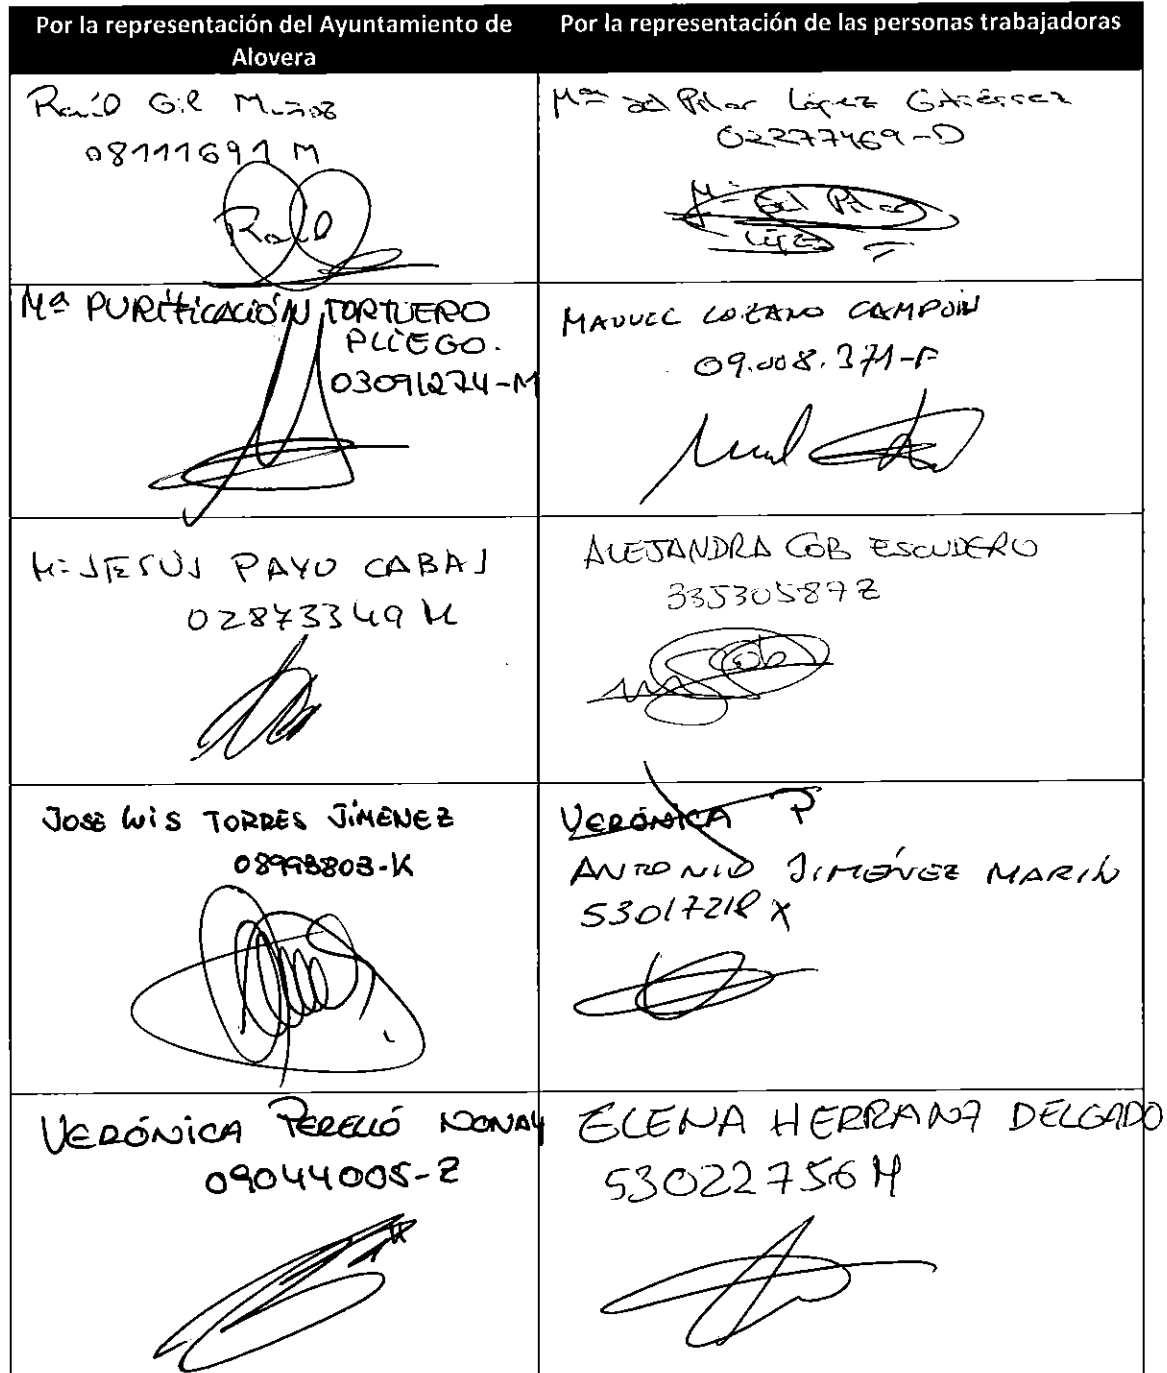 Por la representación del Ayuntamiento de
Alovera
Por la representación de las personas trabajadoras
Raúl Gil Muñoz
08111691 M
Raúl
Mª del Pilar López Gutiérrez
02277469-D
Mª del Pilar
López
Mª PURIFICACIÓN TORTUERO
PLIEGO.
03091274-M
MANUEL LOZANO CAMPÓN
09.008.371-F
Mª JESÚS PAYO CABAS
02873349 M
ALEJANDRA COB ESCUDERO
335305897Z
Cob
JOSE LUIS TORRES JIMÉNEZ
08993803-K
VERÓNICA P
ANTONIO JIMÉNEZ MARÍN
53017218 X
VERÓNICA PERELLÓ NONAY
09044005-Z
ELENA HERRANZ DELGADO
53022756 M